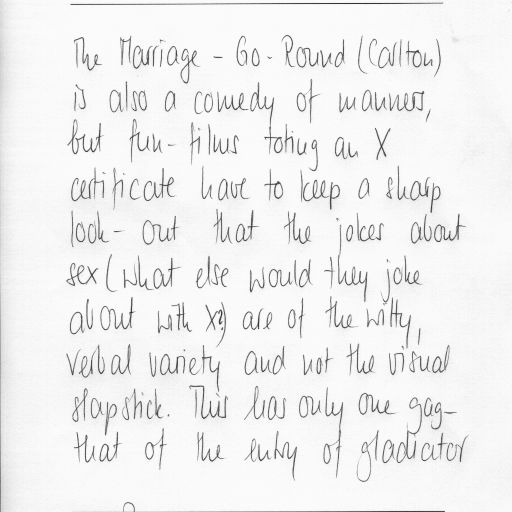 The Marriage - Go - Round (Carlton)
is also a comedy of manners,
but fun - films toting an X
certificate have to keep a sharp
look - out that the jokes about
sex (what else would they joke
about with X?) are of the witty,
verbal variety and not the visual
slapstick. This has only one gag-
that of the entry of gladiator